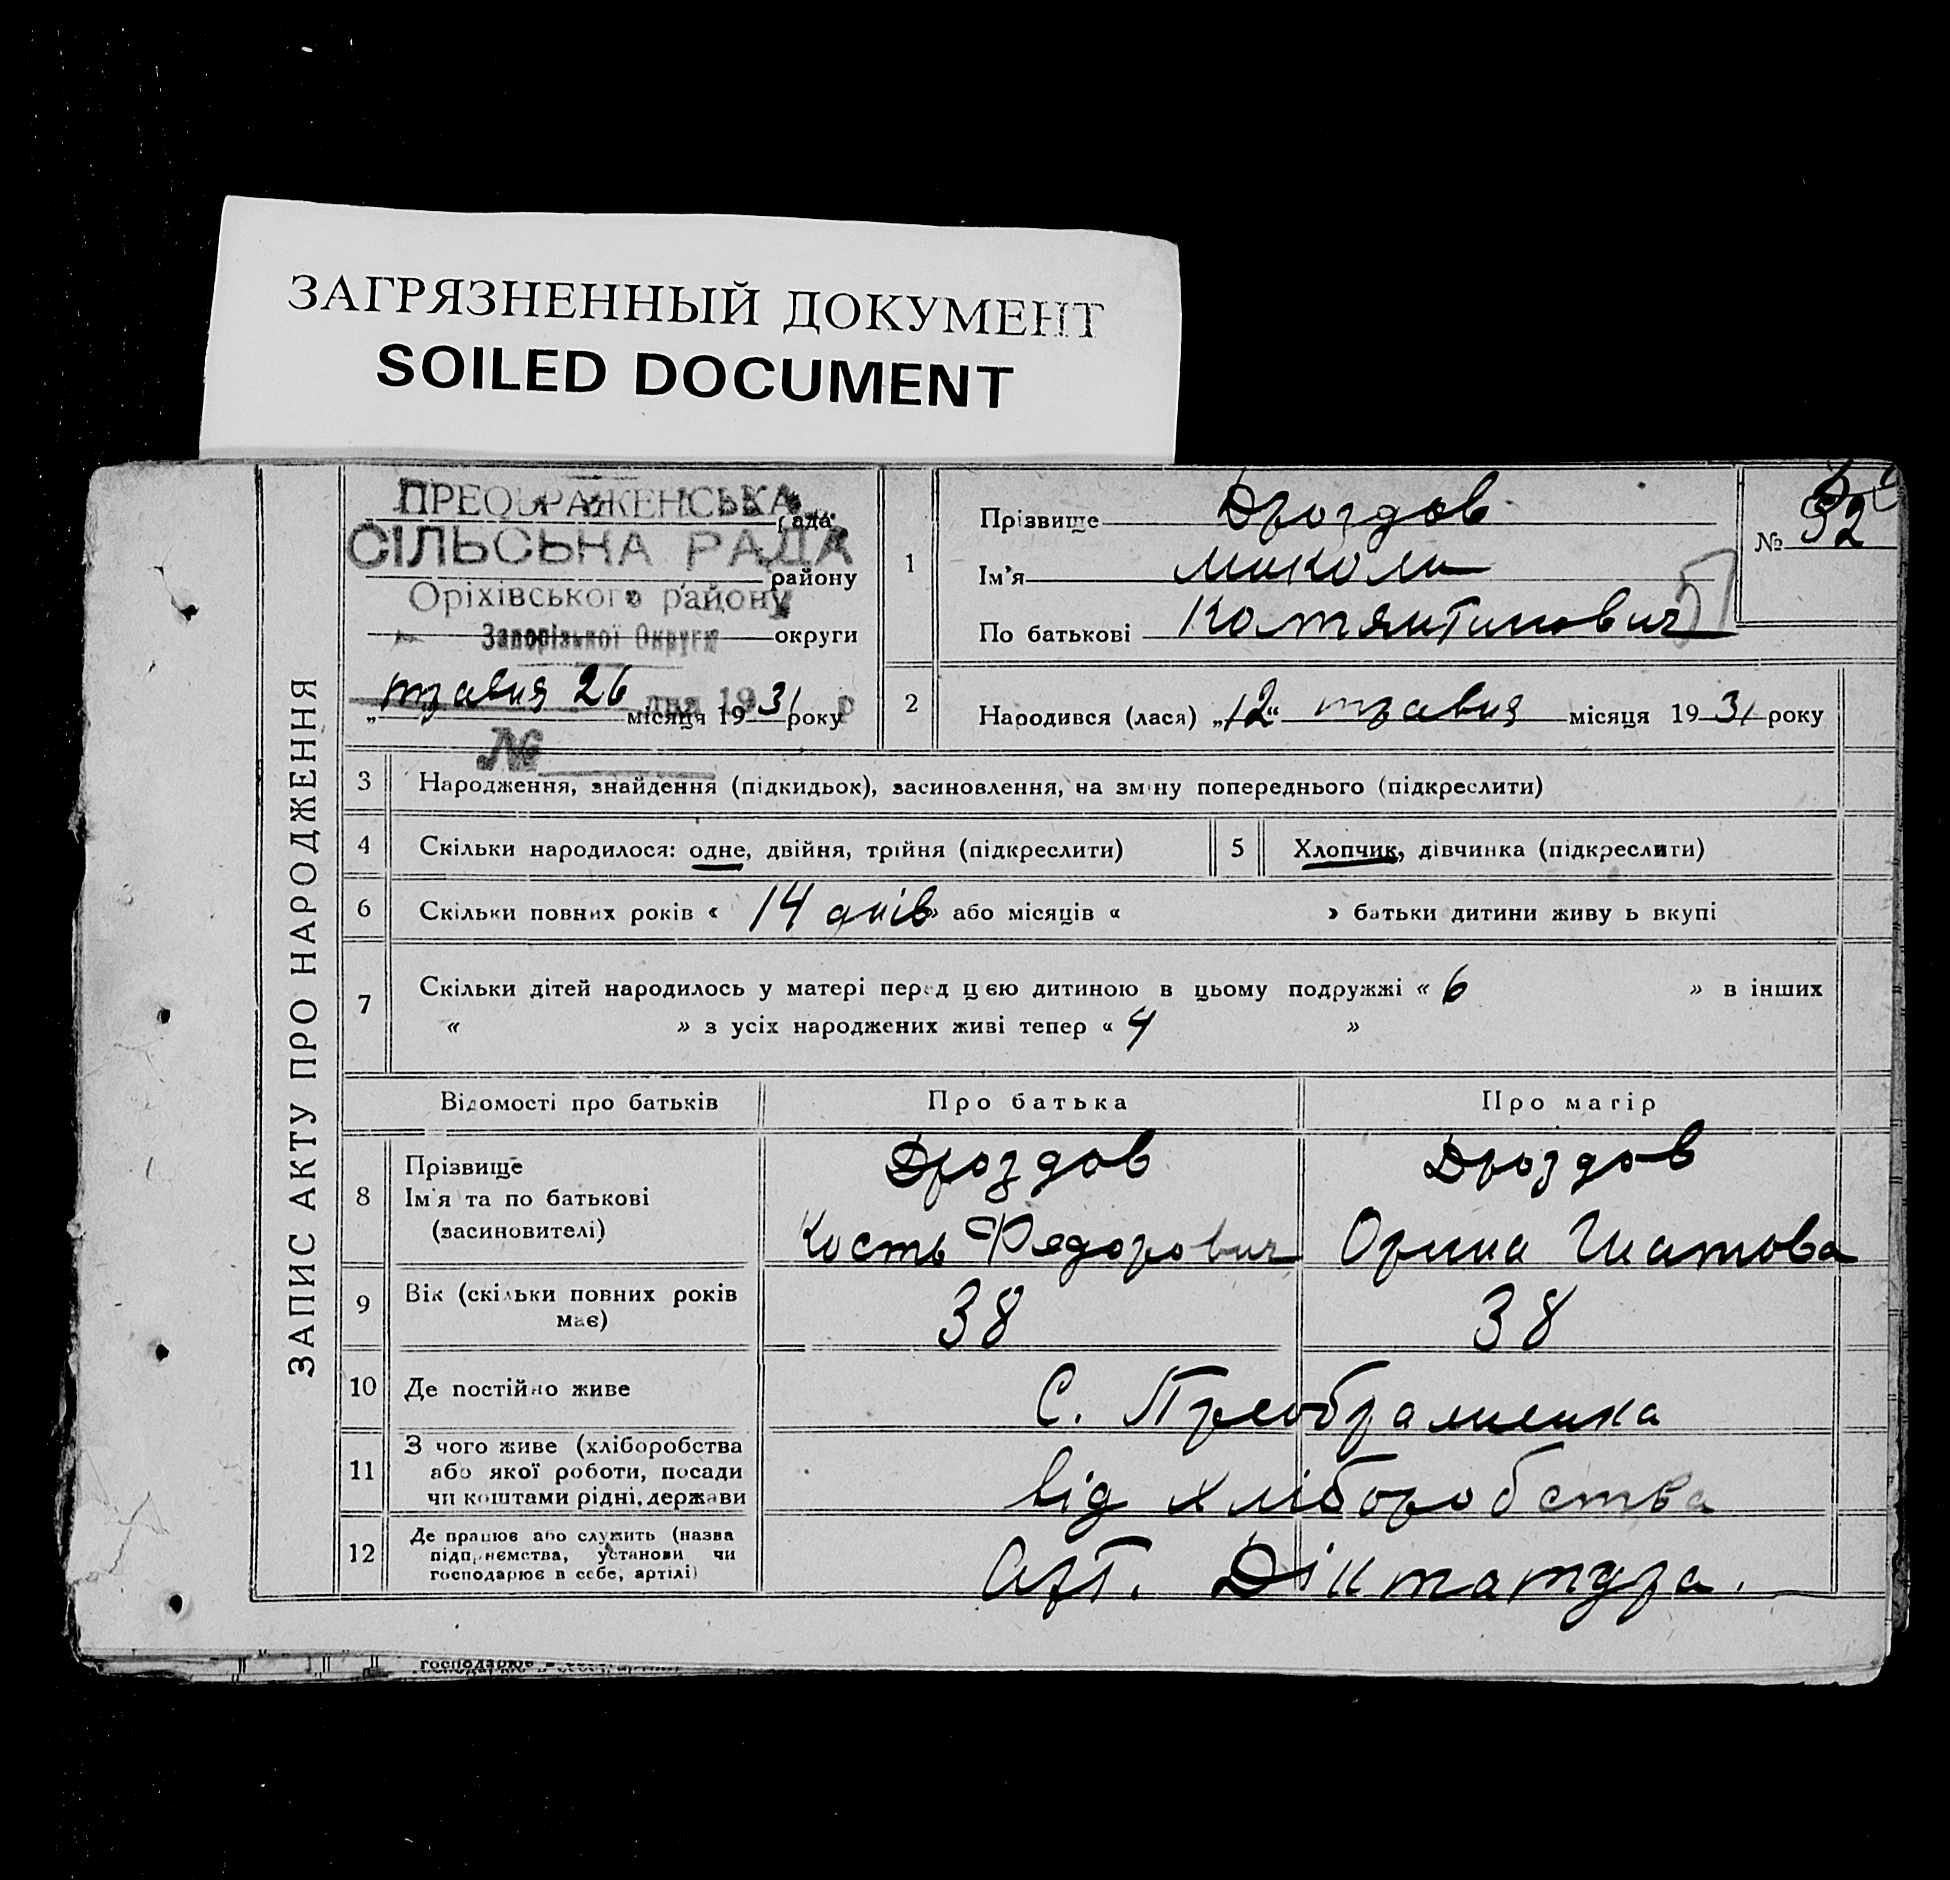 ЗАГРЯЗНЕННЫЙ ДОКУМЕНТ
SOILED DOCUMENT
ЗАПИС АКТУ ПРО НАРОДЖЕННЯ
ПРЕОБРАЖЕНСЬКА
рада
СІЛЬСЬКА РАДА
району
Оріхівського району
Запорізької Округи округи
травня 26 дня 1931 р
„ місяця 19 року
№
1
Прізвище Дроздов
Ім'я Миколи
По батькові Костянтинович
51
№ 92
2 Народився (лася) „12“ травня місяця 1931 року
3 Народження, знайдення (підкидьок), засиновлення, на зміну попереднього (підкреслити)
4 Скільки народилося: одне, двійня, трійня (підкреслити)
5 Хлопчик, дівчинка (підкреслити)
6 Скільки повних років « 14 днів » або місяців « » батьки дитини живу ь вкупі
7 Скільки дітей народилось у матері перед цією дитиною в цьому подружжі « 6 » в інших
« » з усіх народжених живі тепер « 4 »
Відомості про батьків Про батька Про матір
8 Прізвище Дроздов Дроздов
Ім'я та по батькові
(засиновителі) Кость Федорович Орина Гнатова
9 Вік (скільки повних років
має) 38 38
10 Де постійно живе С. Преображенка
11 З чого живе (хліборобства
або якої роботи, посади
чи коштами рідні, держави від хліборобства
12 Де працює або служить (назва
підприємства, установи чи
господарює в себе, артілі) Арт. Діктатура.